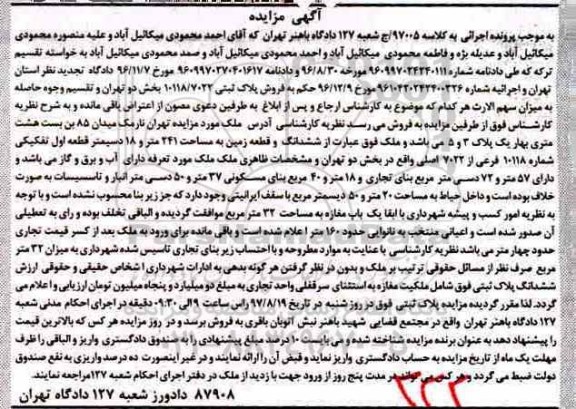 آگهی مزایده
به موجب پرونده اجرائی به کلاسه ۹۷۰۰۵/ج شعبه ۱۲۷ دادگاه باهنر تهران که آقای احمد محمودی میکائیل آباد و علیه منصوره محمودی
میکائیل آباد و عدیله بژه و فاطمه محمودی میکائیل آباد و احمد محمودی میکائیل آباد و صمد محمودی میکائیل آباد به خواسته تقسیم
ترکه که طی دادنامه شماره ۹۶۰۹۹۷۰۲۴۲۴۰۱۱۱ مورخه ۹۶/۸/۳۰ و دادنامه ۹۶۰۹۹۷۰۲۷۰۴۰۱۶۱۷ مورخ ۹۶/۱۱/۷ دادگاه تجدید نظر استان
تهران و اجرائیه شماره ۹۶۱۰۴۲۰۲۴۲۴۰۰۳۲۶ مورخ ۹۶/۱۲/۹ حکم به فروش پلاک ثبتی ۱۰۱۱۸/۷۰۲۲ بخش دو تهران و تقسیم وجوه حاصله
به میزان سهم الارث هر کدام که موضوع به کارشناس ارجاع و پس از ابلاغ به طرفین دعوی مصون از اعتراض باقی مانده و به شرح نظریه
کارشناس فوق از طرفین مزایده به فروش می رسد نظریه کارشناسی آدرس ملک مورد مزایده تهران نارمک میدان ۸۵ بن بست هشت
متری بهار یک پلاک ۳ و ۵ می باشد و ملک فوق عبارت از ششدانگ و قطعه زمین به مساحت ۲۴۱ متر و ۱۸ دسیمتر قطعه اول تفکیکی
شماره ۱۰۱۱۸ فرعی از ۷۰۲۲ اصلی واقع در بخش دو تهران و مشخصات ظاهری ملک ملک مورد تعرفه دارای آب و برق و گاز می باشد و
دارای ۵۷ متر و ۷۲ دسی متر مربع بنای تجاری و ۱۸ متر و ۴۰ مربع بنای مسکونی ۳۷ متر و ۵۰ دسی متر انبار و تاسیسات به صورت
خلاف بوده است و داخل حیاط به مساحت ۲۰ متر و ۵۰ دیسمتر مربع با سقف ایرانیتی وجود دارد که جز زیر بنا محسوب نشده است و با توجه
به نظریه امور کسب و پیشه شهرداری با ابقا یک باب مغازه به مساحت ۳۲ متر مربع موافقت گردیده و الباقی تخلف بوده و رای به تعطیلی
آن صدور شده است و اعیانی منتخب به ناتوانی حدود ۱۶۰ متر را اعلام شده است و باقی مانده برای ورود به ملک بعد از کسر قیمت تجاری
حدود چهار متر می باشد نظریه کارشناسی با عنایت به موارد مطروحه و با احتساب زیر بنای تجاری تاسیس شده شهرداری به میزان ۳۲ متر
مربع صرف نظر از مسائل حقوقی ترتیب بر ملک و بدون در نظر گرفتن هر گونه بدهی به ادارات شهرداری اشخاص حقیقی و حقوقی ارزش
ششدانگ پلاک ثبتی فوق شامل ملکیت مغازه به استثنای سرقفلی واحد تجاری به مبلغ دو میلیارد و پنجاه میلیون تومان ارزیابی و اعلام می
گردد. لذا مقرر گردیده مزایده پلاک ثبتی فوق در روز شنبه در تاریخ ۹۷/۸/۱۹ راس ساعت ۹ الی ۰۹:۳۰ دقیقه در اجرای احکام مدنی شعبه
۱۲۷ دادگاه باهنر تهران واقع در مجتمع قضایی شهید باهنر نبش اتوبان باقری به فروش برسد و در روز مزایده هر کس که بالاترین قیمت
را پیشنهاد دهد به عنوان برنده مزایده شناخته شده و می بایست ۱۰ درصد مبلغ پیشنهادی را به صندوق دادگستری واریز و الباقی را ظرف
مهلت یک ماه از تاریخ مزایده به حساب دادگستری واریز نماید و قبض آن را ارائه نمایند و در غیر اینصورت ده درصد واریزی به نفع صندوق
دولت ضبط می گردد و هر کس می تواند در مدت پنج روز از ورود جهت بازدید از ملک در دفتر اجرای احکام شعبه ۱۲۷ مراجعه نمایند.
۸۷۹۰۸ دادورز شعبه ۱۲۷ دادگاه تهران